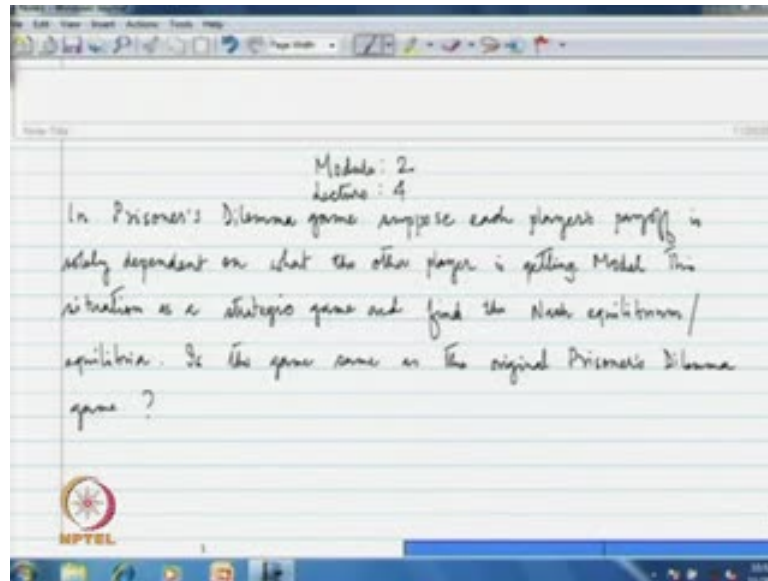 Edit View Insert Actions Tools Help
Page Width
Note Title
Module: 2
Lecture: 4
In Prisoner's Dilemma game suppose each player's payoff is
solely dependent on what the other player is getting Model This
situation as a strategic game and find the Nash equilibrium/
equilibria. Is the game same as the original Prisoner's Dilemma
game ?
NPTEL
1